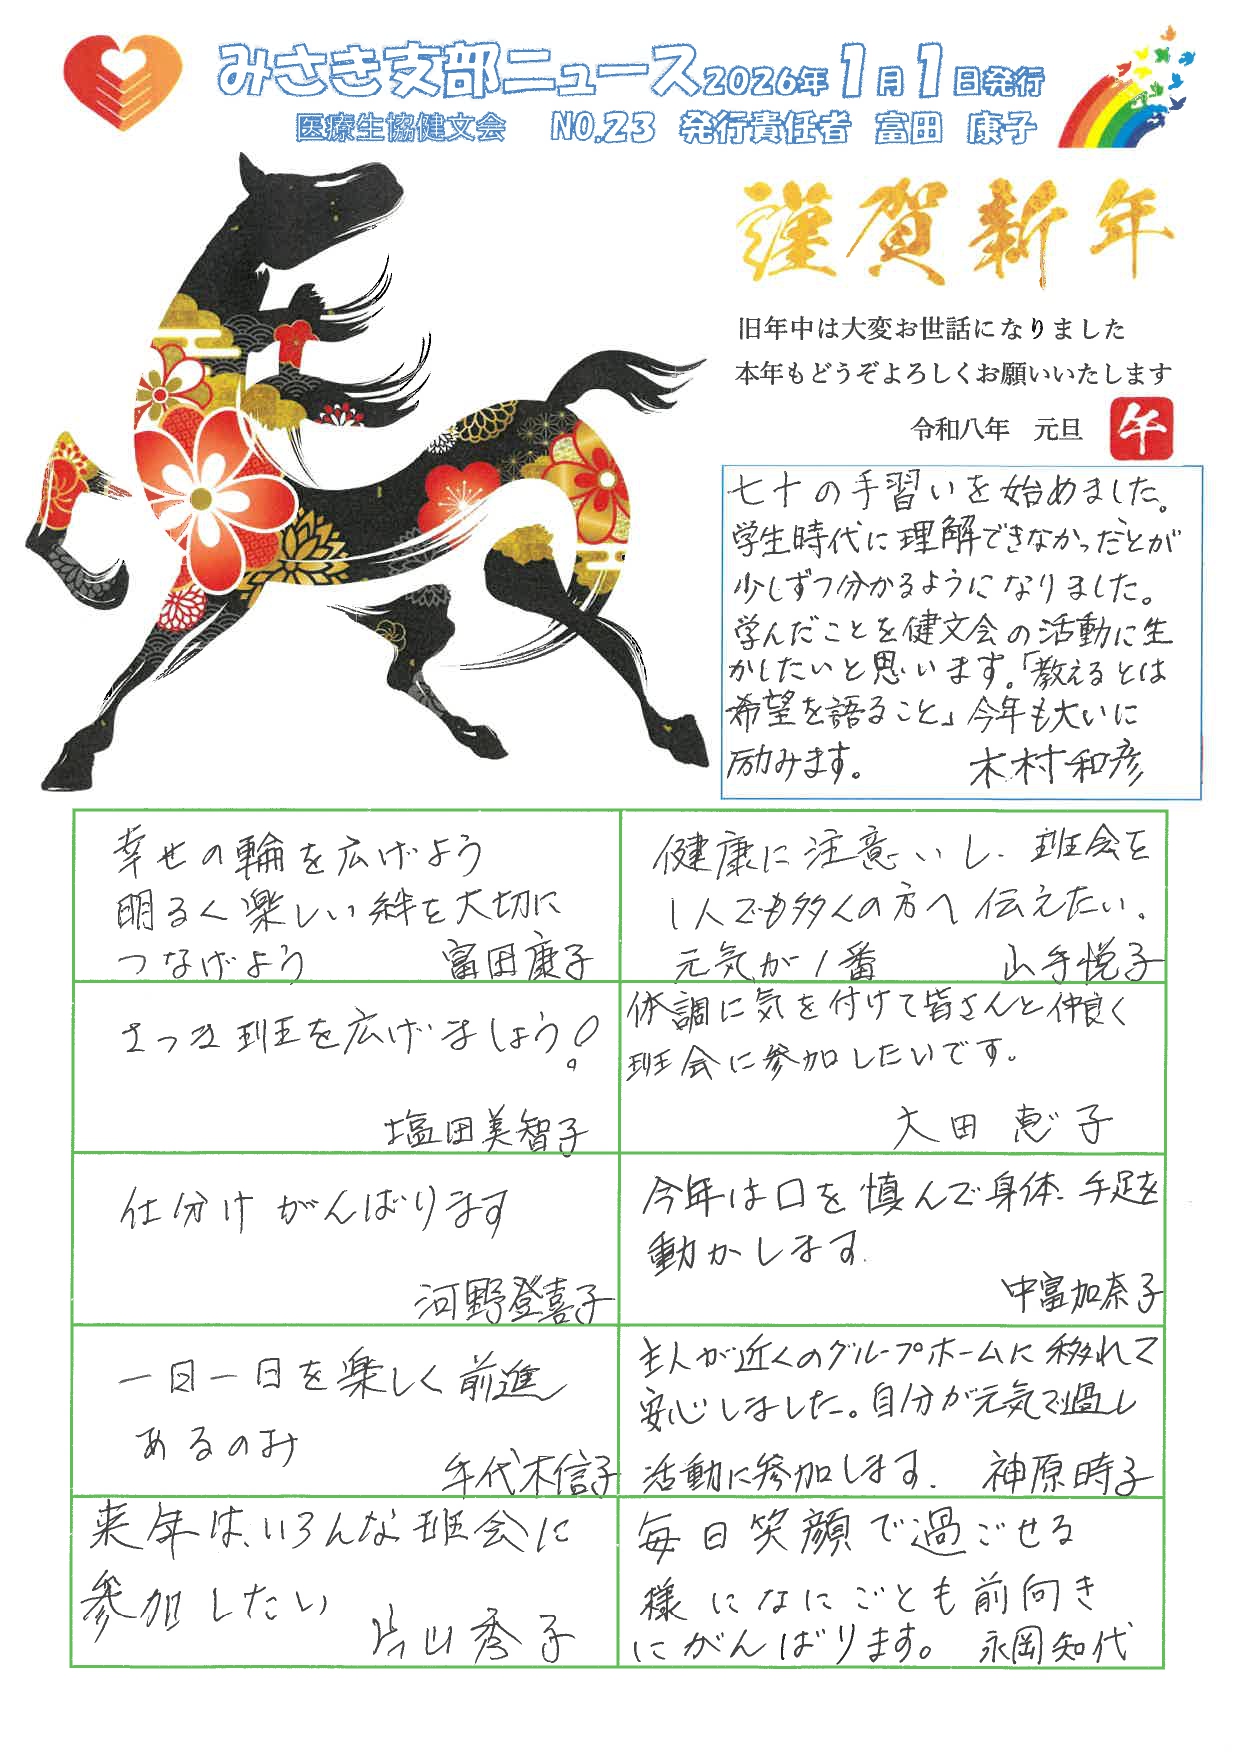 みさき支部ニュース2026年1月1日発行
医療生協健文会 NO.23 発行責任者 富田 康子
謹賀新年
旧年中は大変お世話になりました
本年もどうぞよろしくお願いいたします
令和八年 元旦
午
七十の手習いを始めました。
学生時代に理解できなかったことが
少しずつ分かるようになりました。
学んだことを健文会の活動に生
かしたいと思います。「教えるとは
希望を語ること」今年も大いに
励みます。 木村和彦
幸せの輪を広げよう
明るく楽しい絆を大切に
つなげよう 富田康子
健康に注意いし、班会を
1人でも多くの方へ伝えたい。
元気が1番 山手悦子
さつき班を広げましょう!
塩田美智子
体調に気を付けて皆さんと仲良く
班会に参加したいです。
大田恵子
仕分けがんばります
河野登喜子
今年は口を慎んで身体、手足を
動かします。
中富加奈子
一日一日を楽しく前進
あるのみ
牟代木信子
主人が近くのグループホームに移れて
安心しました。自分が元気で過し
活動に参加します。 神原時子
来年は、いろんな班会に
参加したい
片山秀子
毎日笑顔で過ごせる
様になにごとも前向き
にがんばります。 永岡知代